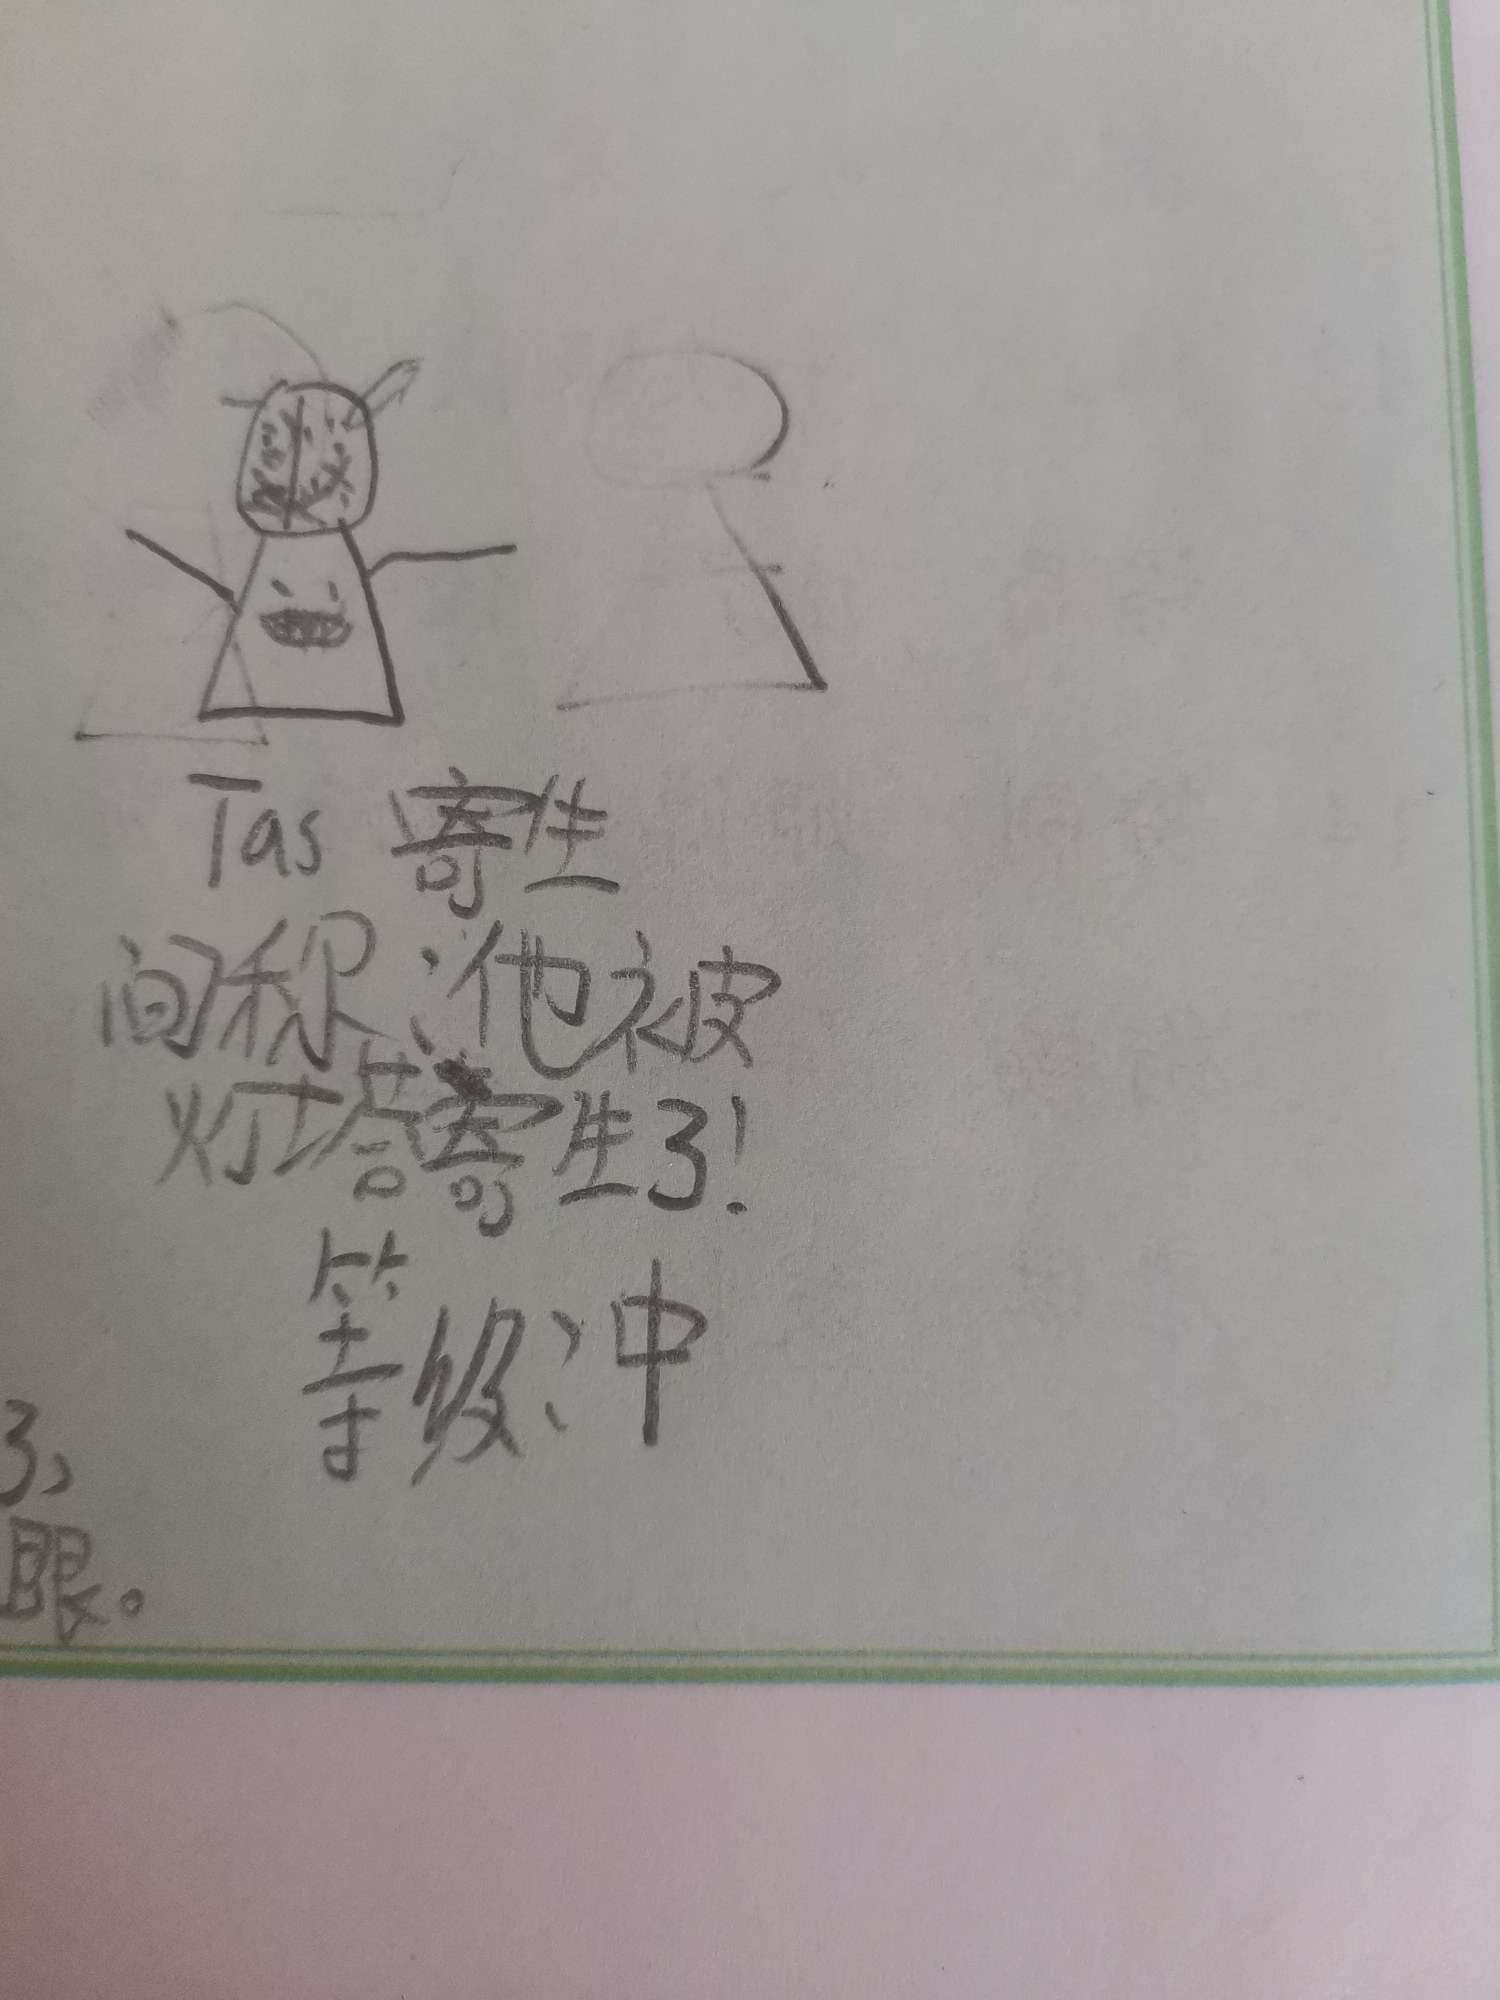 Tas 寄生
间称：他被
灯塔寄生了！
等级：中
了、
眼。